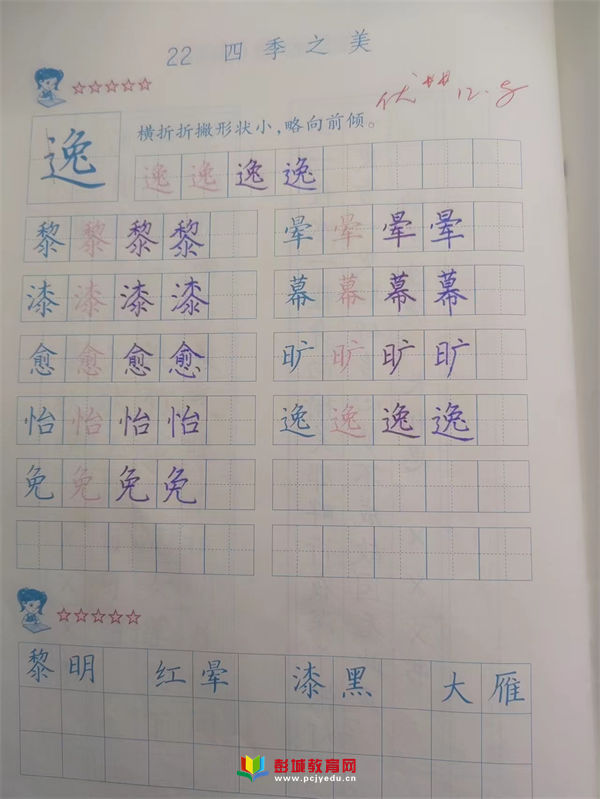 22 四季之美
优 12.8
横折折撇形状小，略向前倾。
逸 逸 逸 逸 逸
黎 黎 黎 黎 晕 晕 晕 晕
漆 漆 漆 漆 幕 幕 幕 幕
愈 愈 愈 愈 旷 旷 旷 旷
怡 怡 怡 怡 逸 逸 逸 逸
免 免 免 免
黎明 红晕 漆黑 大雁
彭城教育网
www.pcjyedu.cn